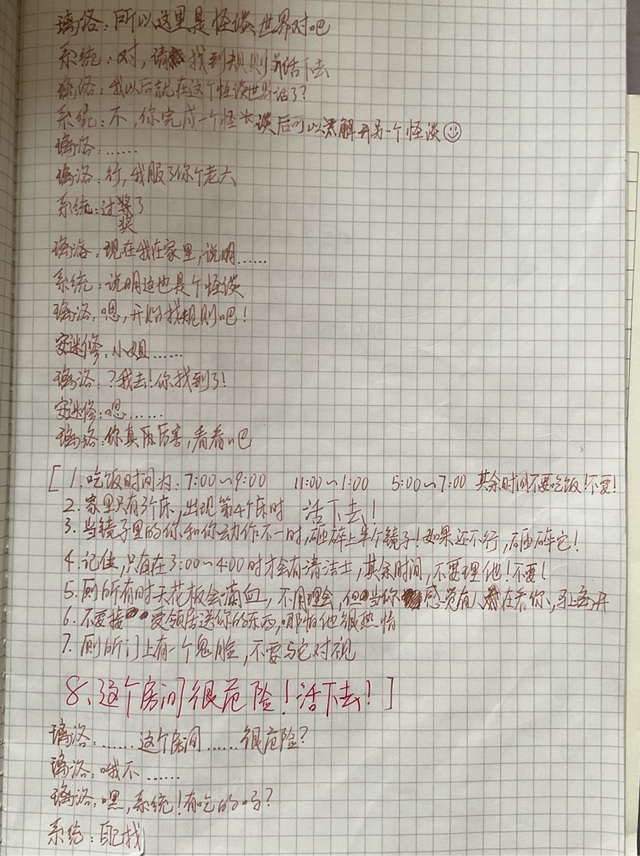 璃洛：所以这里是怪谈世界对吧
系统：对，请找到规则并活下去
璃洛：我以后就在这个怪谈世界活了？
系统：不，你完成一个怪谈后可以解开另一个怪谈
璃洛：……
璃洛：行，我服了你个老六
系统：过奖了
奖
璃洛：现在我在家里，说明……
系统：说明这也是个怪谈
璃洛：嗯，开始找规则吧！
安迷修：小姐……
璃洛：？我去！你找到了！
安迷修：嗯……
璃洛：你真厉害，看看吧
[1.吃饭时间为：7:00~9:00 11:00~1:00 5:00~7:00 其余时间不要吃饭！不要！
2.家里只有3个床，出现第4个床时 活下去！
3.当镜子里的你和你动作不一时，砸碎上半个镜子！如果还不行，砸碎它！
4.记住，只有在3:00~4:00时才会有清洁士，其余时间，不要理他！不要！
5.厕所有时天花板会滴血，不用理会，但当你感觉有人在看你，马上离开
6.不要接受邻居送你的东西，哪怕他很热情
7.厕所门上有一个鬼脸，不要与它对视
8、这个房间很危险！活下去！]
璃洛：……这个房间……很危险？
璃洛：哦不……
璃洛：嘿，系统！有吃的吗？
系统：自己找